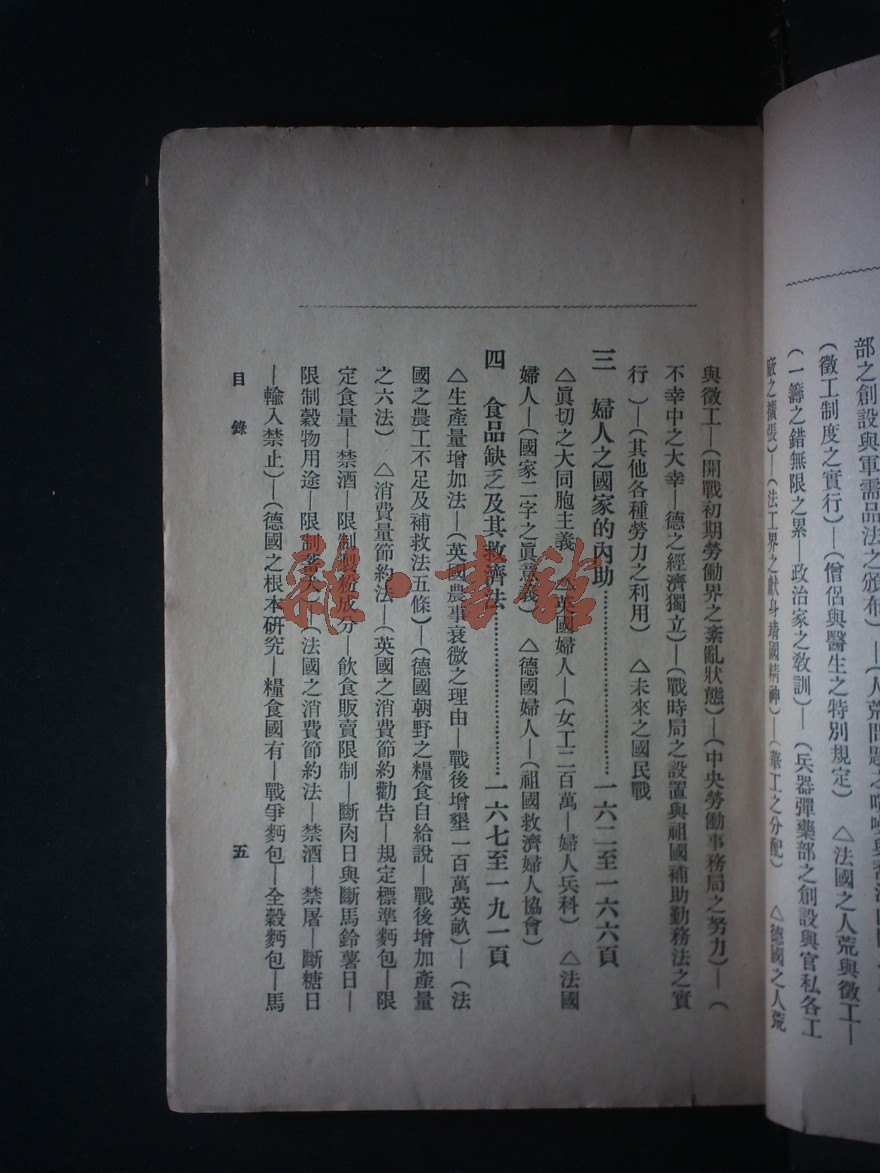 部之創設與軍需品法之頒布)—(人荒問題之
(徵工制度之實行)—(僧侶與醫生之特別規定) △法國之人荒與徵工—
(一籌之錯無限之累—政治家之教訓)—(兵器彈藥部之創設與官私各工
廠之擴張)—(法工界之獻身靖國精神)—(藥工之分配) △德國之人荒
與徵工—(開戰初期勞働界之紊亂狀態)—(中央勞働事務局之努力)—(
不幸中之大幸—德之經濟獨立)—(戰時局之設置與祖國補助勤務法之實
行)—(其他各種勞力之利用) △未來之國民戰
三 婦人之國家的內助………………一六二至一六六頁
△眞切之大同胞主義 △英國婦人—(女工二百萬—婦人兵科) △法國
婦人—(國家二字之眞意義) △德國婦人—(祖國救濟婦人協會)
四 食品缺乏及其救濟法………………一六七至一九一頁
△生產量增加法—(英國農事衰微之理由—戰後增墾一百萬英畝)—(法
國之農工不足及補救法五條)—(德國朝野之糧食自給說—戰後增加產量
之六法) △消費量節約法—(英國之消費節約勸告—規定標準麪包—限
定食量—禁酒—限制製粉成分—飲食販賣限制—斷肉日與斷馬鈴薯日—
限制穀物用途—限制畜犬)—(法國之消費節約法—禁酒—禁屠—斷糖日
—輸入禁止)—(德國之根本研究—糧食國有—戰爭麪包—全穀麪包—馬
目錄 五
雜·書館